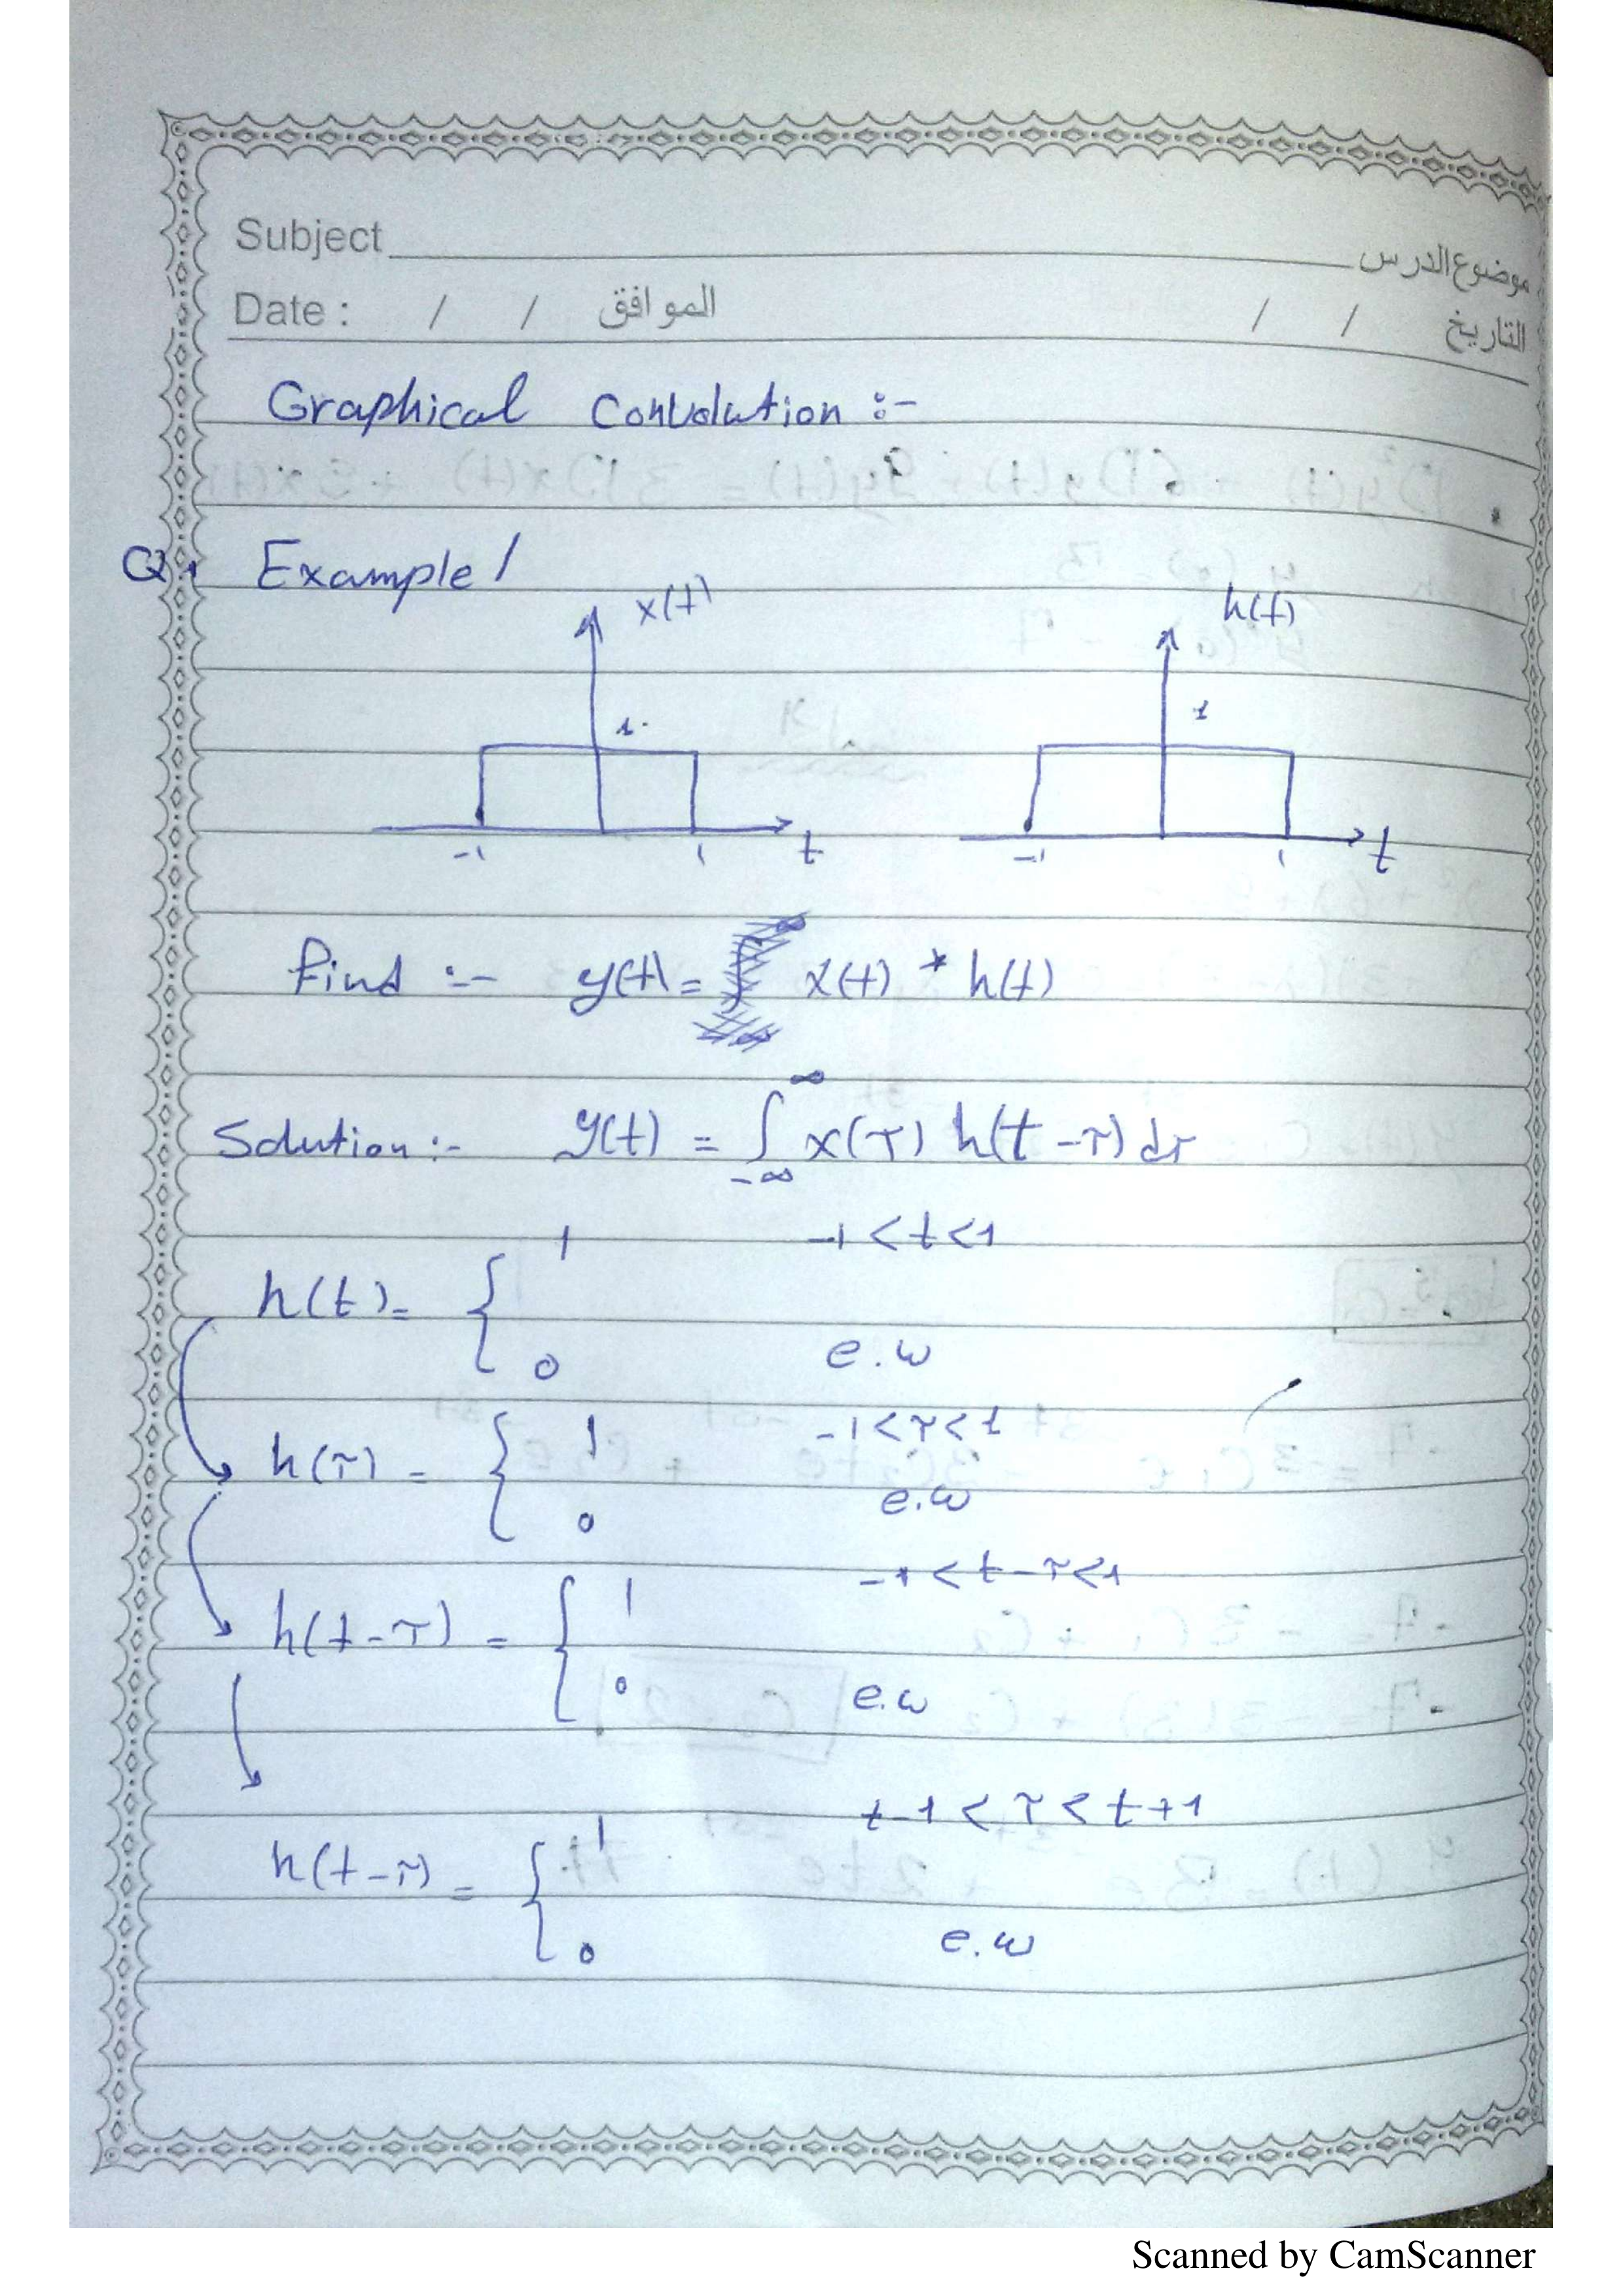 Subject موضوع الدرس
Date : / / الموافق / / التاريخ
Graphical Convolution :-
Q1 Example /
x(t) h(t)
1 1
-1 1 t -1 1 t
find :- y(t) = x(t) * h(t)
Solution :- y(t) = ∫_{-∞}^{∞} x(τ) h(t-τ) dτ
1 -1 < t < 1
h(t) = {
0 e.w
1 -1 < τ < 1
h(τ) = {
0 e.w
1 -1 < t-τ < 1
h(t-τ) = {
0 e.w
1 t-1 < τ < t+1
h(t-τ) = {
0 e.w
Scanned by CamScanner